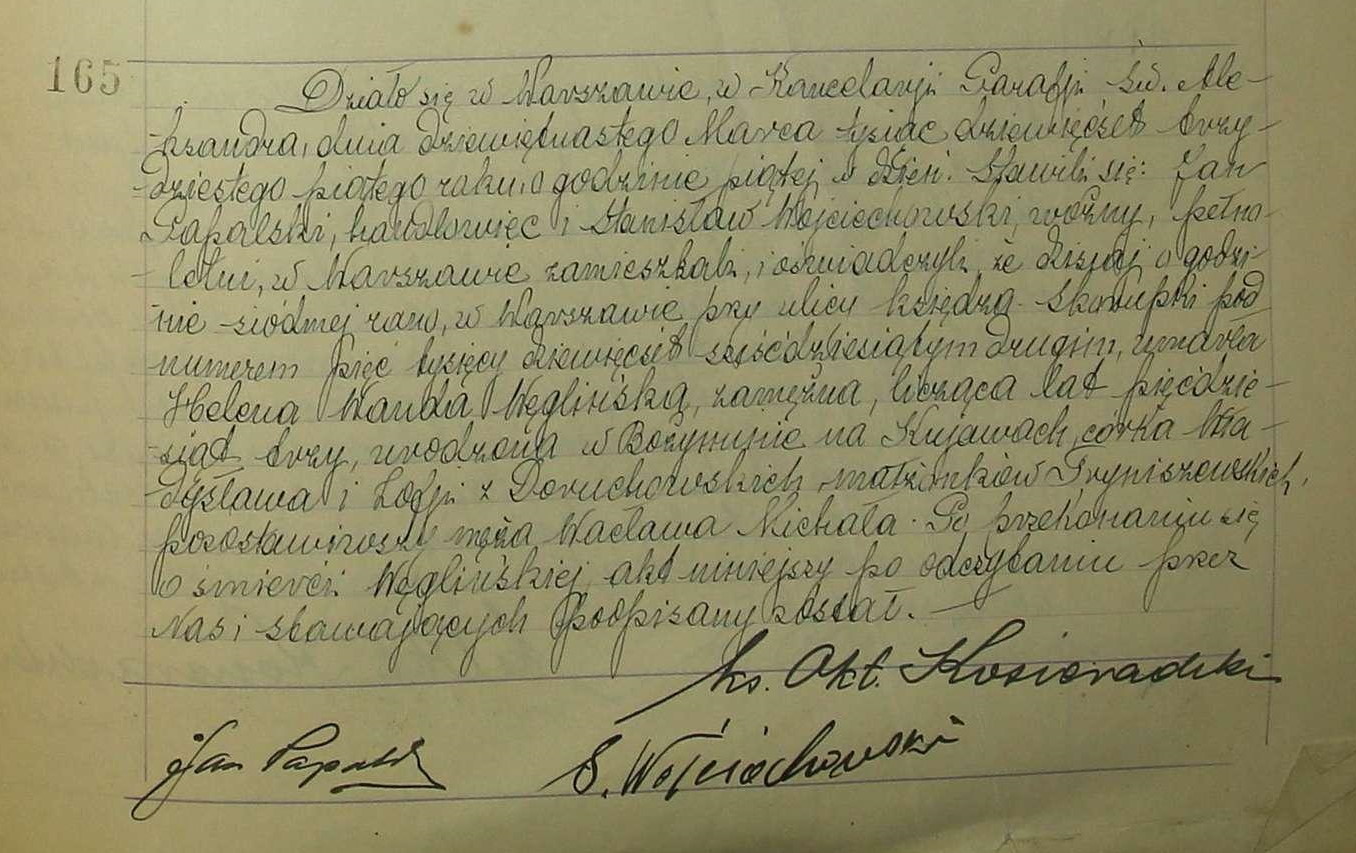 165
Działo się w Warszawie, w Kancelarji Parafji św. Ale-
ksandra, dnia dziewiętnastego Marca tysiąc dziewięćset trzy-
dziestego piątego roku, o godzinie piątej w dzień. Stawili się: Jan
Papalski, handlowiec i Stanisław Wojciechowski, woźny, pełno-
letni, w Warszawie zamieszkali, i oświadczyli, że dzisiaj o godzi-
nie siódmej rano, w Warszawie przy ulicy księdza Skorupki pod
numerem pięć tysięcy dziewięćset sześćdziesiątym drugim, umarła
Helena Wanda Węglińska, zamężna, licząca lat pięćdzie-
siąt trzy, urodzona w na Kujawach, córka Wła-
dysława i Zofji z Doruchowskich, małżonków Tryniszewskich,
pozostawiwszy męża Wacława Michała. Po przekonaniu się
o śmierci Węglińskiej, akt niniejszy po odczytaniu przez
Nas i stawających podpisany został.
ks. Okt. Kosieradzki
Jan Papalski
S. Wojciechowski